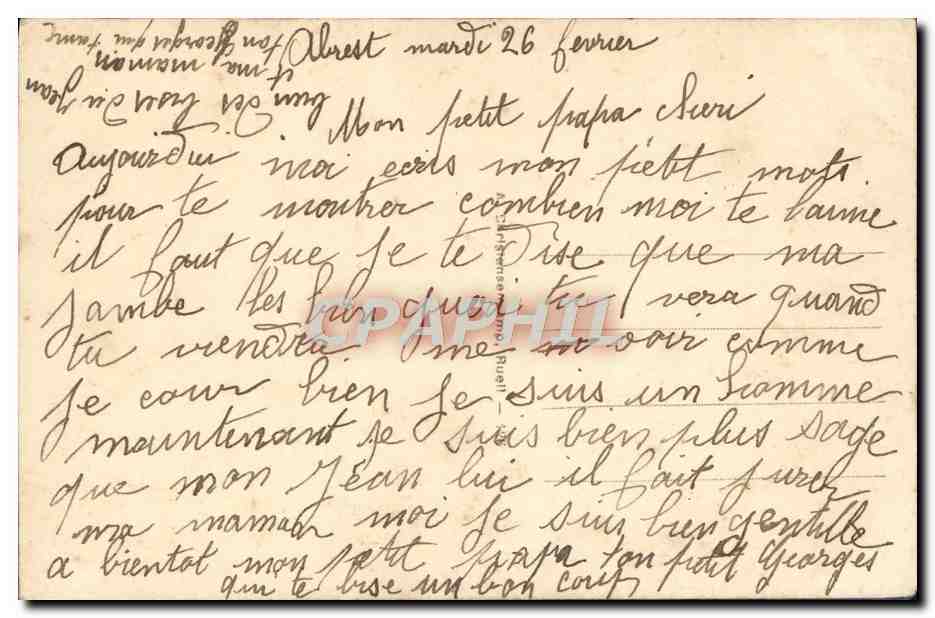 Abrest mardi 26 fevrier
Mon petit papa cheri
aujourdui moi ecris mon petit mots
pour te montrer combien moi te l'aime
il faut que je te dise que ma
jambe les bien quoi tu vera quand
tu viendra me voir comme
je cour bien je suis un homme
maintenant je suis bien plus sage
que mon Jean lui il fait jurer
ma maman moi je suis bien gentille
a bientot mon petit papa ton petit Georges
qui te bise un bon coup
ton Georges qui t'aime
et ma maman
Jean
CPAPHIL
Ruell